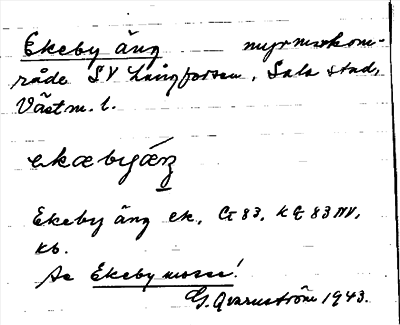 Ekeby äng myrmarkom-
råde SV Långforsen, Sala stad,
Västm. l.
ekæbyǽŋ
Ekeby äng ek. G 83, KG 83 NV,
kb.
Se Ekeby mosse!
G. Qvarnström 1943.